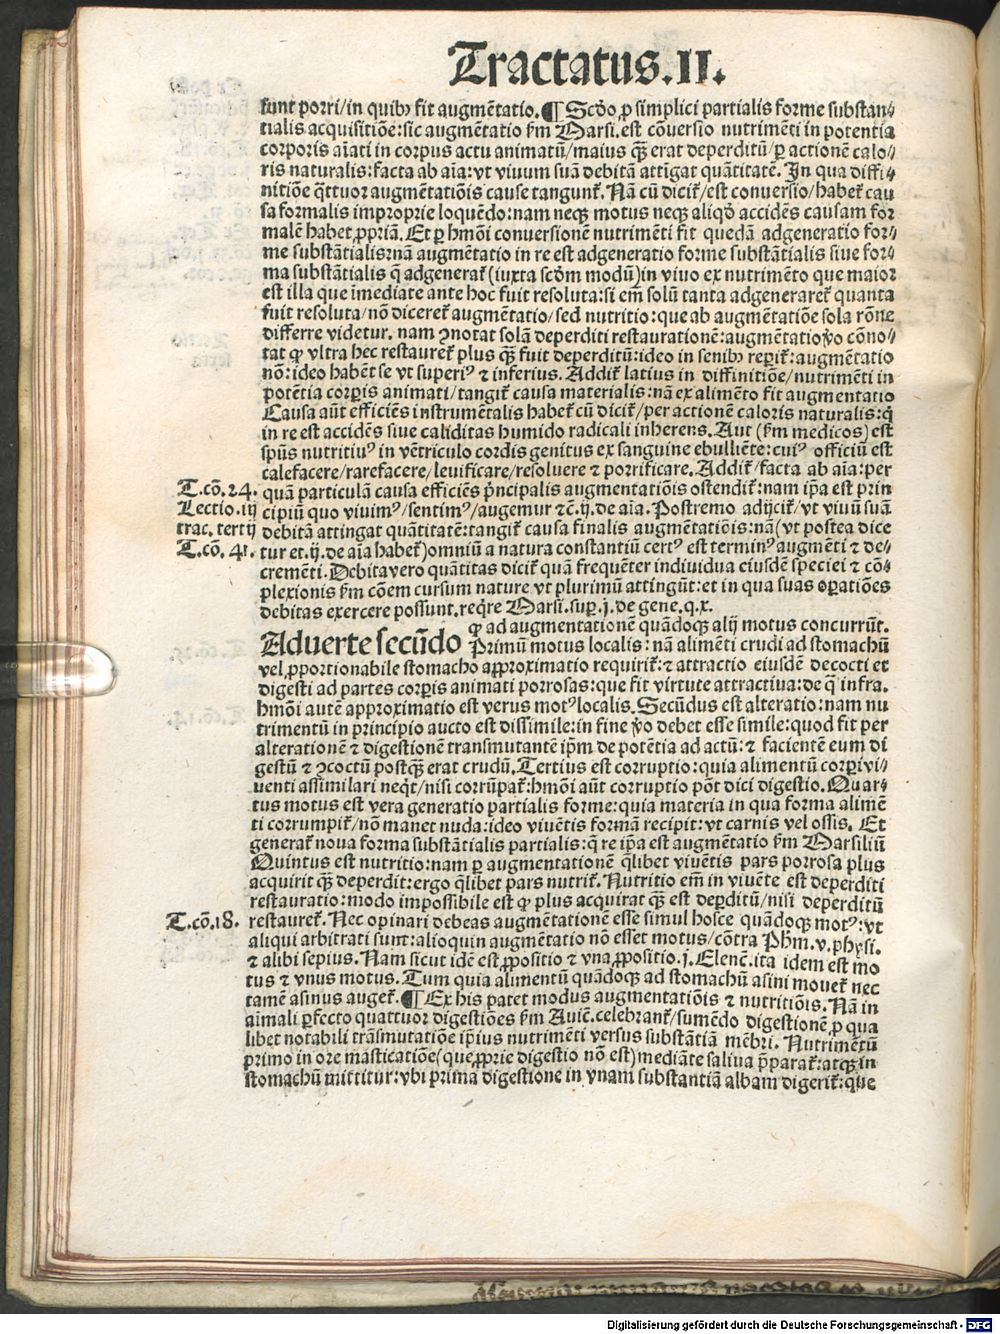 Tractatus.II.
sunt porri/in quibꝰ fit augmētatio.¶ Scdo ꝓ simplici partialis forme substan⸗
tialis acquisitiōe:sic augmētatio ẜm Marsi.est cōuersio nutrimēti in potentia
corporis aīati in corpus actu animatū/maius qꝫ erat deperditū/ꝑ actionē calo⸗
ris naturalis:facta ab aīa:vt viuum suā debitā attigat quātitatē. In qua diffi⸗
nitiōe q̄ttuor augmētatiōis cause tangunt᷑. Nā cū dicit᷑/est conuersio/habet᷑ cau
sa formalis improprie loquēdo:nam neqꝫ motus neqꝫ aliqđ accidēs causam for
malē habet ꝓpriā. Et ꝑ hmōi conuersionē nutrimēti fit quedā adgeneratio for⸗
me substātialis:nā augmētatio in re est adgeneratio forme substātialis siue for⸗
ma substātialis q̄ adgenerat᷑ (iuxta scđm modū)in viuo ex nutrimēto que maior
est illa que īmediate ante hoc fuit resoluta:si em̄ solū tanta adgeneraret᷑ quanta
fuit resoluta/nō diceret᷑ augmētatio/sed nutritio:que ab augmētatiōe sola rōne
differre videtur. nam ꝯnotat solā deperditi restaurationē:augmētatio ꝟo cōno⸗
tat ꝙ vltra hec restauret᷑ plus qꝫ fuit deperditū:ideo in senibꝰ reꝑit᷑:augmētatio
nō:ideo habēt se vt superiꝰ ⁊ inferius. Addit᷑ latius in diffinitiōe/nutrimēti in
potētia corꝑis animati/tangit᷑ causa materialis:nā ex alimēto fit augmentatio
Causa aūt efficiēs instrumētalis habet᷑ cū dicit᷑/per actionē caloris naturalis:q̄
in re est accidēs siue caliditas humido radicali inherens. Aut (ẜm medicos) est
sp̄us nutritiuꝰ in vētriculo cordis genitus ex sanguine ebulliēte:cuiꝰ officiū est
calefacere/rarefacere/leuificare/resoluere ⁊ porrificare. Addit᷑/facta ab aīa:per
T.cō.24. quā particulā causa efficiēs p̄ncipalis augmentatiōis ostendit᷑:nam ip̄a est prin
Lectio.iij cipiū quo viuimꝰ/sentimꝰ/augemur ⁊c̄.ij.de aīa. Postremo adijcit᷑/vt viuū suā
trac. tertij debitā attingat quātitatē:tangit᷑ causa finalis augmētatiōis:nā(vt postea dice
T.cō. 41. tur et.ij.de aīa habet᷑)omniū a natura constantiū certꝰ est terminꝰ augmēti ⁊ de⸗
crementi. Debita vero quātitas dicit᷑ quā frequēter indiuidua eiusdē speciei ⁊ cō⸗
plexionis ẜm cōem cursum nature vt plurimū attingūt:et in qua suas oꝑatiōes
debitas exercere possunt.req̄re Marsi.suꝑ.j.de gene.q.x.
Aduerte secūdo ꝙ ad augmentationē quādoqꝫ alij motus concurrūt.
Primū motus localis: nā alimēti crudi ad stomachū
vel ꝓportionabile stomacho approximatio requirit᷑:⁊ attractio eiusdē decocti et
digesti ad partes corꝑis animati porrosas:que fit virtute attractiua:de q̄ infra.
hmōi autē approximatio est verus motꝰ localis. Secūdus est alteratio:nam nu
trimentū in principio aucto est dissimile:in fine ꝟo debet esse simile:quod fit per
alterationē ⁊ digestionē transmutantē ip̄m de potētia ad actū:⁊ facientē eum di
gestū ⁊ ꝯcoctū postqꝫ erat crudū.Tertius est corruptio:quia alimentū corꝑi vi⸗
uenti assimilari neqt/nisi corrūpat᷑:hmōi aūt corruptio pōt dici digestio. Quar⸗
tus motus est vera generatio partialis forme:quia materia in qua forma alimē
ti corrumpit᷑/nō manet nuda:ideo viuētis formā recipit:vt carnis vel ossis. Et
generat᷑ noua forma substātialis partialis:q̄ re ip̄a est augmētatio ẜm Marsiliū
Quintus est nutritio:nam ꝑ augmentationē q̄libet viuētis pars porrosa plus
acquirit qꝫ deperdit:ergo q̄libet pars nutrit᷑. Nutritio em̄ in viuēte est deperditi
restauratio:modo impossibile est ꝙ plus acquirat qꝫ est deꝑditū/nisi deperditū
T.cō.18. restauret᷑. Nec opinari debeas augmētationē esse simul hosce quādoqꝫ motꝰ:vt
aliqui arbitrati sunt:alioquin augmētatio nō esset motus/cōtra Phm.v.physi.
⁊ alibi sepius. Nam sicut idē est ꝓpositio ⁊ vna ꝓpositio.j.Elenc̄.ita idem est mo
tus ⁊ vnus motus. Tum quia alimentū quādoqꝫ ad stomachū asini mouet᷑ nec
tamē asinus auget᷑.¶ Ex his patet modus augmentatiōis ⁊ nutritiōis. Nā in
aīmali ꝑfecto quattuor digestiōes ẜm Auiē.celebrant᷑/sumēdo digestionē ꝓ qua
libet notabili trāsmutatiōe ip̄ius nutrimēti versus substātiā mēbri. Nutrimētū
primo in ore masticatiōe(que ꝓprie digestio nō est)mediāte saliua p̄parat᷑:atqꝫ in
stomachū mittitur:vbi prima digestione in vnam substātiā albam digerit᷑:que
Digitalisierung gefördert durch die Deutsche Forschungsgemeinschaft - DFG